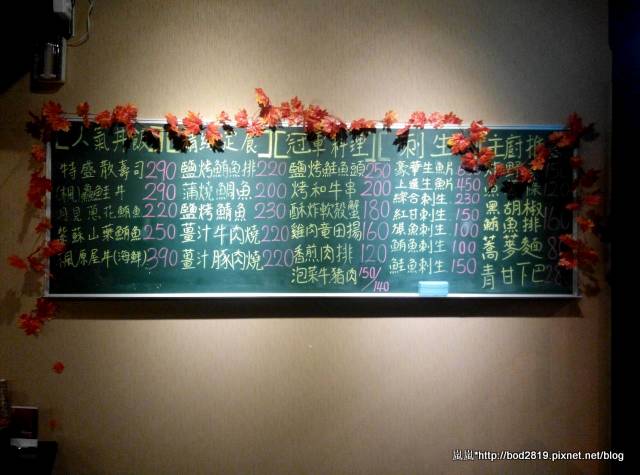 人氣丼飯
特盛散壽司 290
290
蔥花鮪魚 220
紫蘇山藥鮪魚 250
原屋牛(海鮮) 390
定食
鹽烤鮪魚排 220
蒲燒鯛魚 200
鹽烤鯖魚 230
薑汁牛肉燒 220
薑汁豚肉燒 220
冠軍料理
鹽烤鮭魚頭 250
烤和牛串 200
酥炸軟殼蟹 180
雞肉竜田揚 160
香煎肉排 120
泡菜牛豬肉 150/140
刺生
豪華生魚片
上選生魚片 450
綜合刺生 230
紅甘刺生 150
旗魚刺生 100
鮪魚刺生 100
鮭魚刺生 150
主廚推
黑胡椒
鮪魚排
蕎麥麵
青甘下巴
嵐嵐*http://bod2819.pixnet.net/blog